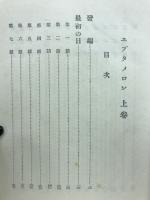 エプタメロン 上卷
目次
發端
最初の日
第一話
第二話
第三話
第四話
第五話
第六話
第七話